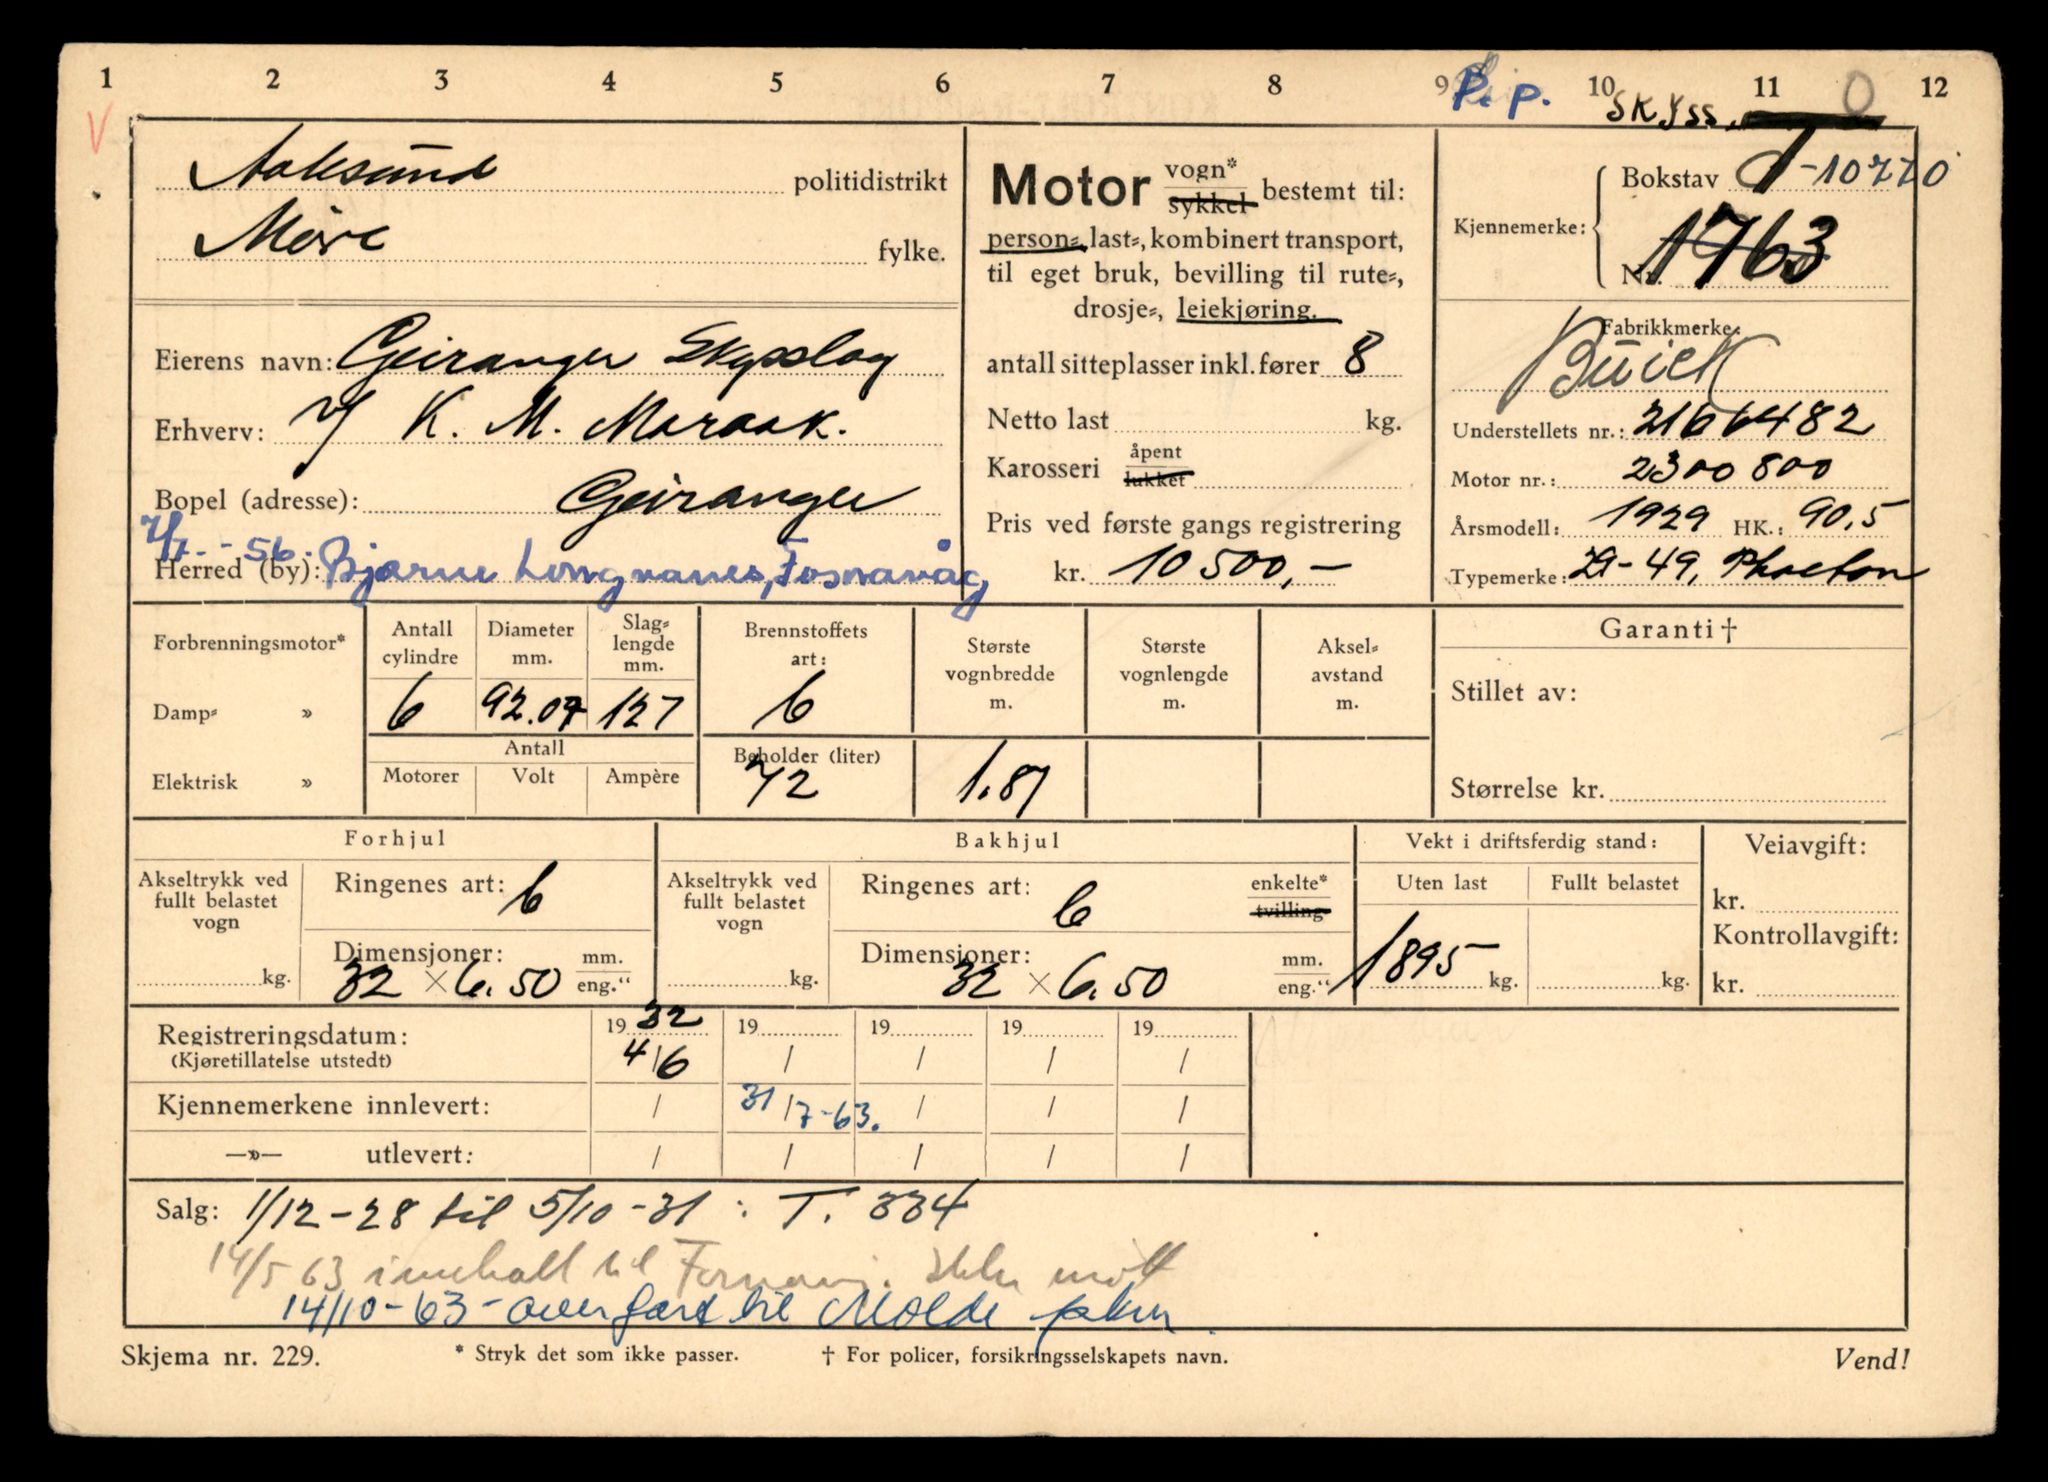 1 2 3 4 5 6 7 8 9 P. p. 10 11 0 12
V SKyss.
Aalesund politidistrikt
Møre fylke.
Eierens navn: Geiranger Skysslag
Erhverv: v/ K. M. Meraak.
Bopel (adresse): Geiranger
7/7 - 56.
Herred (by): Bjarne Longvanes, Fosnavåg
Motor vogn* sykkel bestemt til:
person-, last-, kombinert transport,
til eget bruk, bevilling til rute-,
drosje-, leiekjøring.
antall sitteplasser inkl. fører 8
Netto last kg.
Karosseri åpent lukket
Pris ved første gangs registrering
kr. 10 500,-
Kjennemerke: Bokstav T-10770
Nr. 1763
Fabrikkmerke:
Buick
Understellets nr.: 2166482
Motor nr.: 2300800
Årsmodell: 1929 HK.: 90.5
Typemerke: 29-49, Phaeton
Forbrenningsmotor*
Damp- »
Elektrisk »
Antall cylindre 6
Diameter mm. 92.07
Slaglengde mm. 127
Antall
Motorer Volt Ampère
Brennstoffets art: b
Beholder (liter) 72
Største vognbredde m. 1.87
Største vognlengde m.
Aksel-avstand m.
Garanti †
Stillet av:
Størrelse kr.
Forhjul
Akseltrykk ved fullt belastet vogn kg.
Ringenes art: b
Dimensjoner: 32 × 6.50 mm. eng."
Bakhjul
Akseltrykk ved fullt belastet vogn kg.
Ringenes art: b enkelte* tvilling
Dimensjoner: 32 × 6.50 mm. eng."
Vekt i driftsferdig stand:
Uten last Fullt belastet
1895 kg. kg.
Veiavgift:
kr.
Kontrollavgift:
kr.
Registreringsdatum: 19 32 19 19 19 19
(Kjøretillatelse utstedt) 4/6 / / / /
Kjennemerkene innlevert: / 31/7-63. / / /
—»— utlevert: / / / / /
Salg: 1/12-28 til 5/10-31 : T. 334
14/5 63 innkalt til Fosnavåg. Ikke møtt
14/10-63 - overført til Molde pkm.
Skjema nr. 229. * Stryk det som ikke passer. † For policer, forsikringsselskapets navn. Vend!